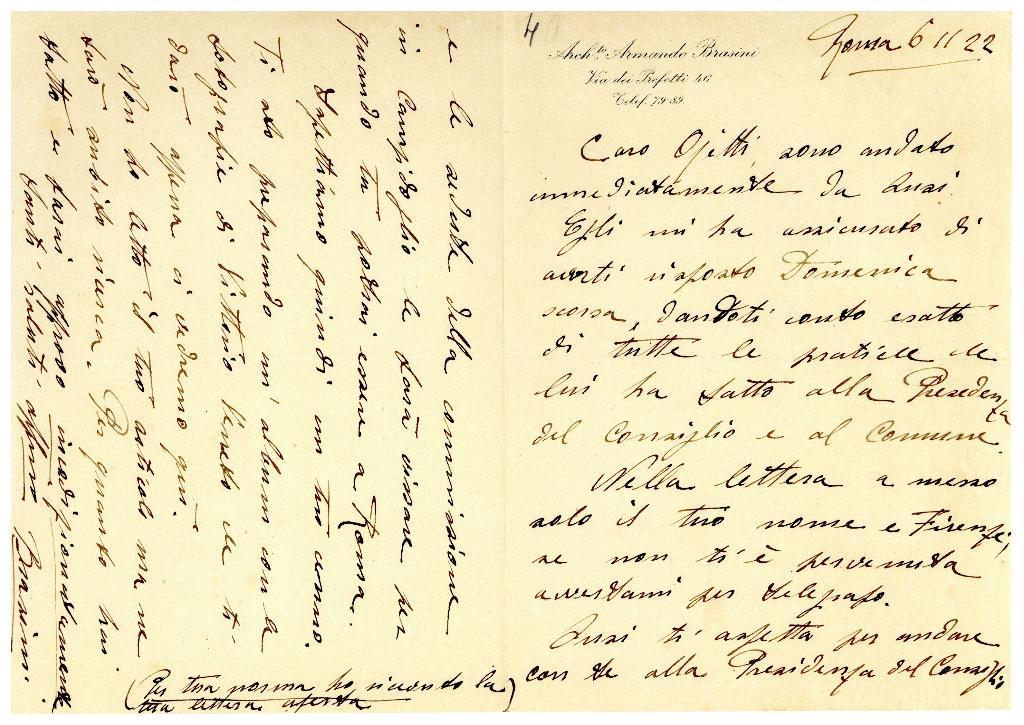 4
Roma 6 11 22
Archto. Armando Brasini
Via dei Prefetti 46
Telef. 79-89.
Caro Ojetti, sono andato
immediatamente da Quai.
Egli mi ha assicurato di
averti risposto Domenica
scorsa, dandoti conto esatto
di tutte le pratiche che
lui ha fatto alla Presidenza
del Consiglio e al Comune.
Nella lettera a messo
solo il tuo nome e Firenze,
se non ti è pervenuta
avvertami per telegrafo.
ti aspetta per andare
con te alla Presidenza del Consiglio
e le sedute della commissione
in Campidoglio le farà fissare per
quando tu potrai essere a Roma.
Aspettiamo quindi un tuo cenno.
Ti sto preparando un album con la
fotografie di Vittorio Veneto che ti
darò appena ci vedremo qui.
Non ho letto il tuo articolo ma ne
farò subito ricerca. Per quanto hai
fatto e farai approvo incondizionatamente
Tanti saluti affmo Brasini.
(Per tua norma ho ricevuto la
tua lettera aperta)